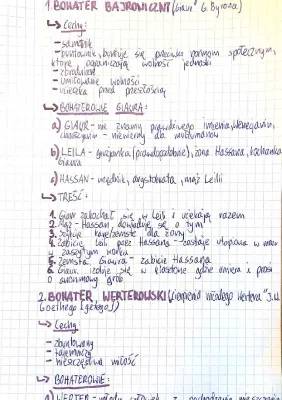 1. BOHATER BAJRONICZNY ("Giaur" G. Byrona)
↳ Cechy:
- samotnik
- buntownik, buntuje się przeciwko normom społecznym,
które ograniczają wolność jednostki
- zbrodniarz
- umiłowanie wolności
- ucieczka przed przeszłością
↳ BOHATEROWIE GIAURA:
a) GIAUR - nie znamy prawdziwego imienia, Wenecjanin,
chrześcijanin - niewierny dla muzułmanów
b) LEILA - (prawdopodobnie), żona Hassana, kochanka
Giaura
c) HASSAN - urzędnik, arystokrata, mąż Leili
↳ TREŚĆ:
1. Giaur zakochał się w Leili i uciekają razem
2. Mąż - Hassan dowiaduje się o tym
3. żony
4. Zabicie Leili przez Hassana - zostaje utopiona w morzu
w zaszytym worku
5. Zemsta Giaura - zabicie Hassana
6. Giaur w klasztorze gdzie umiera i prosi
o anonimowy grób
2. BOHATER WERTEROWSKI ("Cierpienia młodego Wertera" J.W.
Goethego [getego])
↳ Cechy:
- zbuntowany
- tajemniczy
- nieszczęśliwa miłość
↳ BOHATEROWIE:
1) WERTER - młody człowiek, z pochodzenia mieszczanin